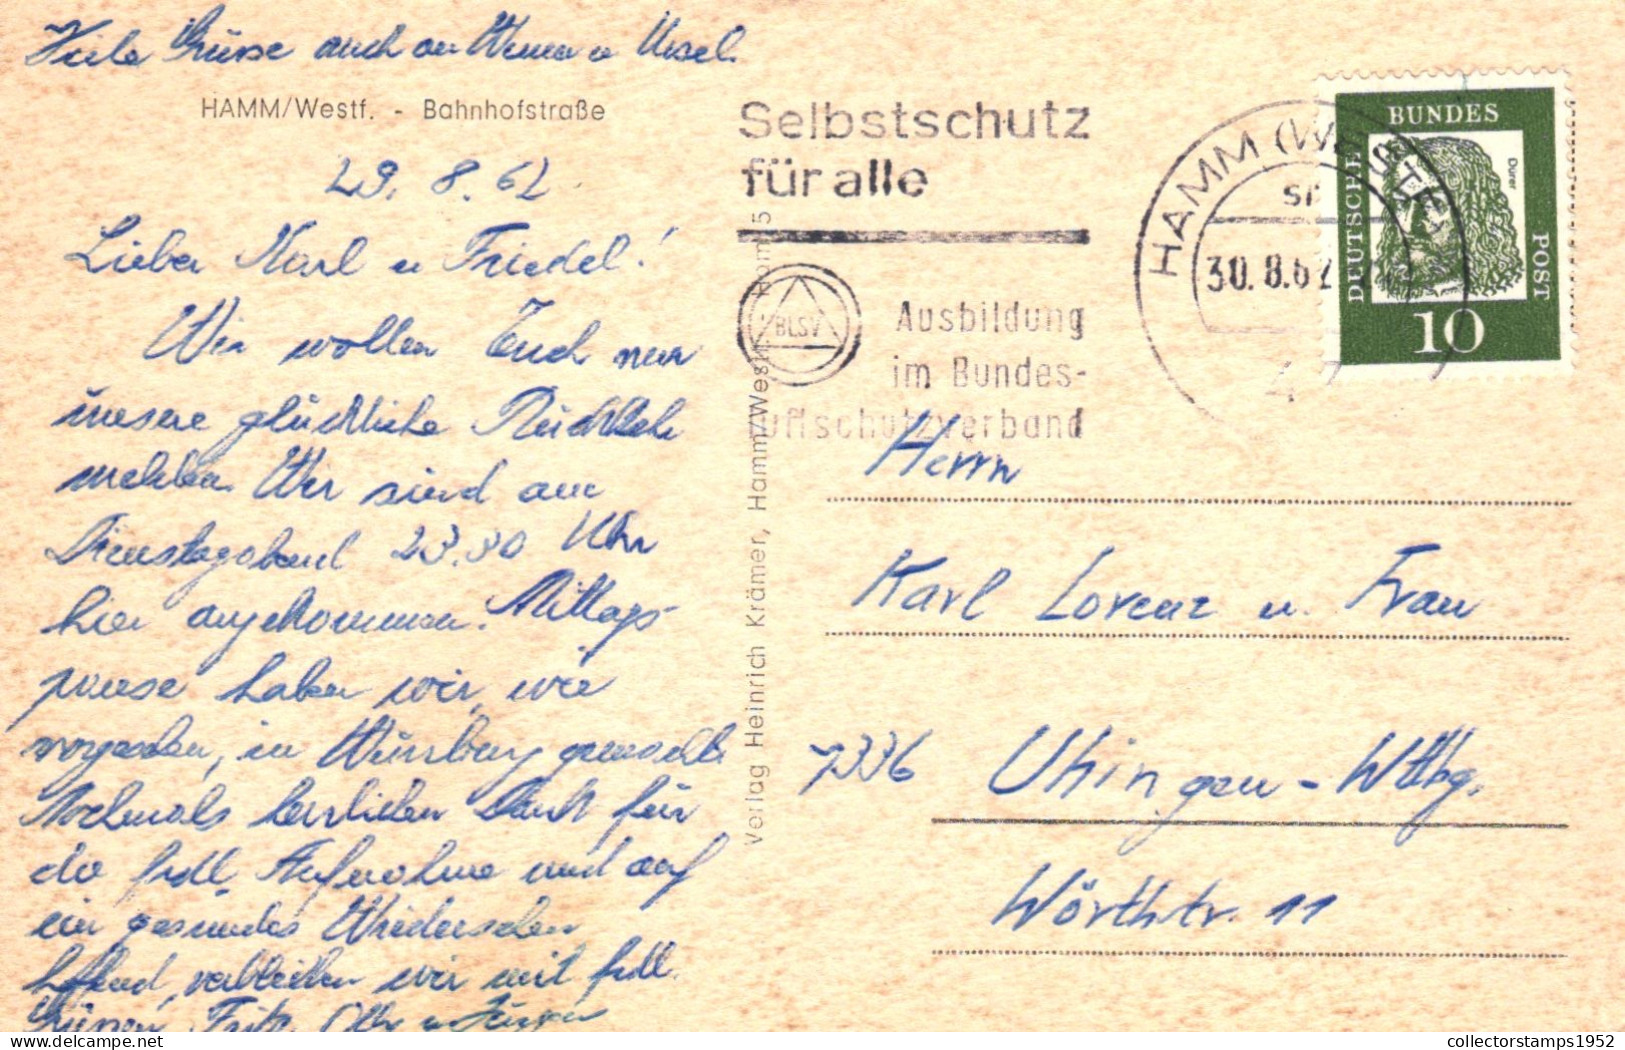 Viele Grüsse auch an Werner u Ursel.
HAMM/Westf. - Bahnhofstraße
29. 8. 62.
Lieber Karl u Friedel!
Wir wollen Euch nur
unsere glückliche Rückkehr
melden. Wir sind am
Dienstagabend 23.30 Uhr
hier angekommen. Mittags-
pause haben wir, wie
vorgesehen, in Würzburg gemacht.
Nochmals herzlichen Dank für
die frdl. Aufnahme und auf
ein gesundes Wiedersehen
hoffend, verbleiben wir mit frdl.
Grüssen Fritz, u Jürgen
Verlag Heinrich Krämer, Hamm/Westf.
Selbstschutz
für alle
BLSV
Ausbildung
im Bundes-
luftschutzverband
HAMM (WESTF)
30.8.62
DEUTSCHE
BUNDES
POST
Dürer
10
Herrn
Karl Lorenz u. Frau
7336 Uhingen-Wttbg.
Wörthstr. 11
collectorstamps1952